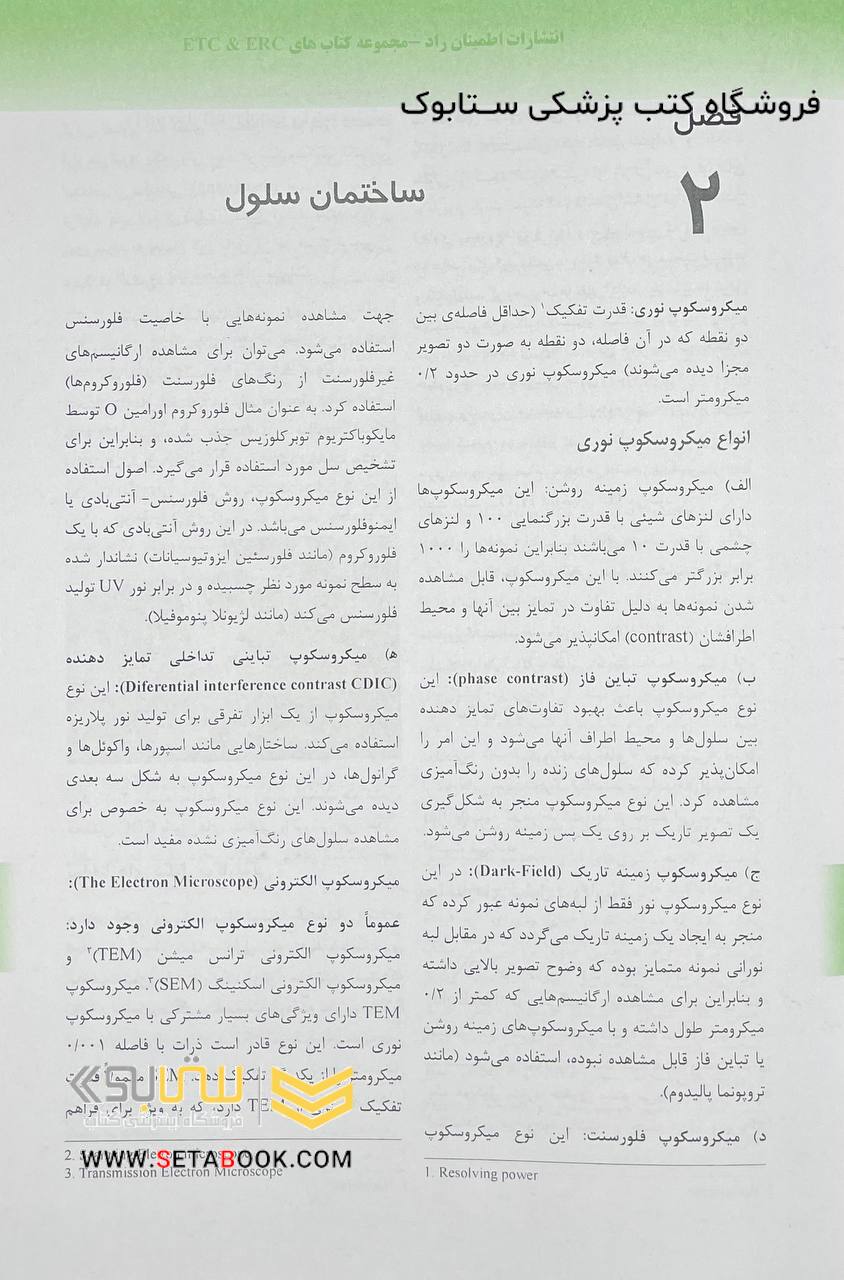 انتشارات اطمینان راد –مجموعه کتاب های ETC & ERC
فروشگاه کتب پزشکی ســتابوک
فصل
۲
ساختمان سلول
میکروسکوپ نوری: قدرت تفکیک۱ (حداقل فاصله‌ی بین
دو نقطه که در آن فاصله، دو نقطه به صورت دو تصویر
مجزا دیده می‌شوند) میکروسکوپ نوری در حدود ۰/۲
میکرومتر است.
انواع میکروسکوپ نوری
الف) میکروسکوپ زمینه روشن: این میکروسکوپ‌ها
دارای لنزهای شیئی با قدرت بزرگنمایی ۱۰۰ و لنزهای
چشمی با قدرت ۱۰ می‌باشند بنابراین نمونه‌ها را ۱۰۰۰
برابر بزرگتر می‌کنند. با این میکروسکوپ، قابل مشاهده
شدن نمونه‌ها به دلیل تفاوت در تمایز بین آنها و محیط
اطرافشان (contrast) امکانپذیر می‌شود.
ب) میکروسکوپ تباین فاز (phase contrast): این
نوع میکروسکوپ باعث بهبود تفاوت‌های تمایز دهنده
بین سلول‌ها و محیط اطراف آنها می‌شود و این امر را
امکان‌پذیر کرده که سلول‌های زنده را بدون رنگ‌آمیزی
مشاهده کرد. این نوع میکروسکوپ منجر به شکل‌گیری
یک تصویر تاریک بر روی یک پس زمینه روشن می‌شود.
ج) میکروسکوپ زمینه تاریک (Dark-Field): در این
نوع میکروسکوپ نور فقط از لبه‌های نمونه عبور کرده که
منجر به ایجاد یک زمینه تاریک می‌گردد که در مقابل لبه
نورانی نمونه متمایز بوده که وضوح تصویر بالایی داشته
و بنابراین برای مشاهده ارگانیسم‌هایی که کمتر از ۰/۲
میکرومتر طول داشته و با میکروسکوپ‌های زمینه روشن
یا تباین فاز قابل مشاهده نبوده، استفاده می‌شود (مانند
تروپونما پالیدوم).
د) میکروسکوپ فلورسنت: این نوع میکروسکوپ
1. Resolving power
جهت مشاهده نمونه‌هایی با خاصیت فلورسنس
استفاده می‌شود. می‌توان برای مشاهده ارگانیسم‌های
غیرفلورسنت از رنگ‌های فلورسنت (فلوروکروم‌ها)
استفاده کرد. به عنوان مثال فلوروکروم اورامین O توسط
مایکوباکتریوم توبرکلوزیس جذب شده، و بنابراین برای
تشخیص سل مورد استفاده قرار می‌گیرد. اصول استفاده
از این نوع میکروسکوپ، روش فلورسنس– آنتی‌بادی یا
ایمنوفلورسنس می‌باشد. در این روش آنتی‌بادی که با یک
فلوروکروم (مانند فلورسئین ایزوتیوسیانات) نشاندار شده
به سطح نمونه مورد نظر چسبیده و در برابر نور UV تولید
فلورسنس می‌کند (مانند لژیونلا پنوموفیلا).
ه) میکروسکوپ تباینی تداخلی تمایز دهنده
(Diferential interference contrast CDIC): این نوع
میکروسکوپ از یک ابزار تفرقی برای تولید نور پلاریزه
استفاده می‌کند. ساختارهایی مانند اسپورها، واکوئل‌ها و
گرانول‌ها، در این نوع میکروسکوپ به شکل سه بعدی
دیده می‌شوند. این نوع میکروسکوپ به خصوص برای
مشاهده سلول‌های رنگ‌آمیزی نشده مفید است.
میکروسکوپ الکترونی (The Electron Microscope):
عموماً دو نوع میکروسکوپ الکترونی وجود دارد:
میکروسکوپ الکترونی ترانس میشن (TEM)۲ و
میکروسکوپ الکترونی اسکنینگ (SEM)۳. میکروسکوپ
TEM دارای ویژگی‌های بسیار مشترکی با میکروسکوپ
نوری است. این نوع قادر است ذرات با فاصله ۰/۰۰۱
میکرومتر را از یکدیگر تفکیک دهد. معمولاً
تفکیک TEM دارد، که به ویژه برای فراهم
ستابوک
فروشگاه اینترنتی کتاب
2. Electron microscope
WWW.SETABOOK.COM
3. Transmission Electron Microscope